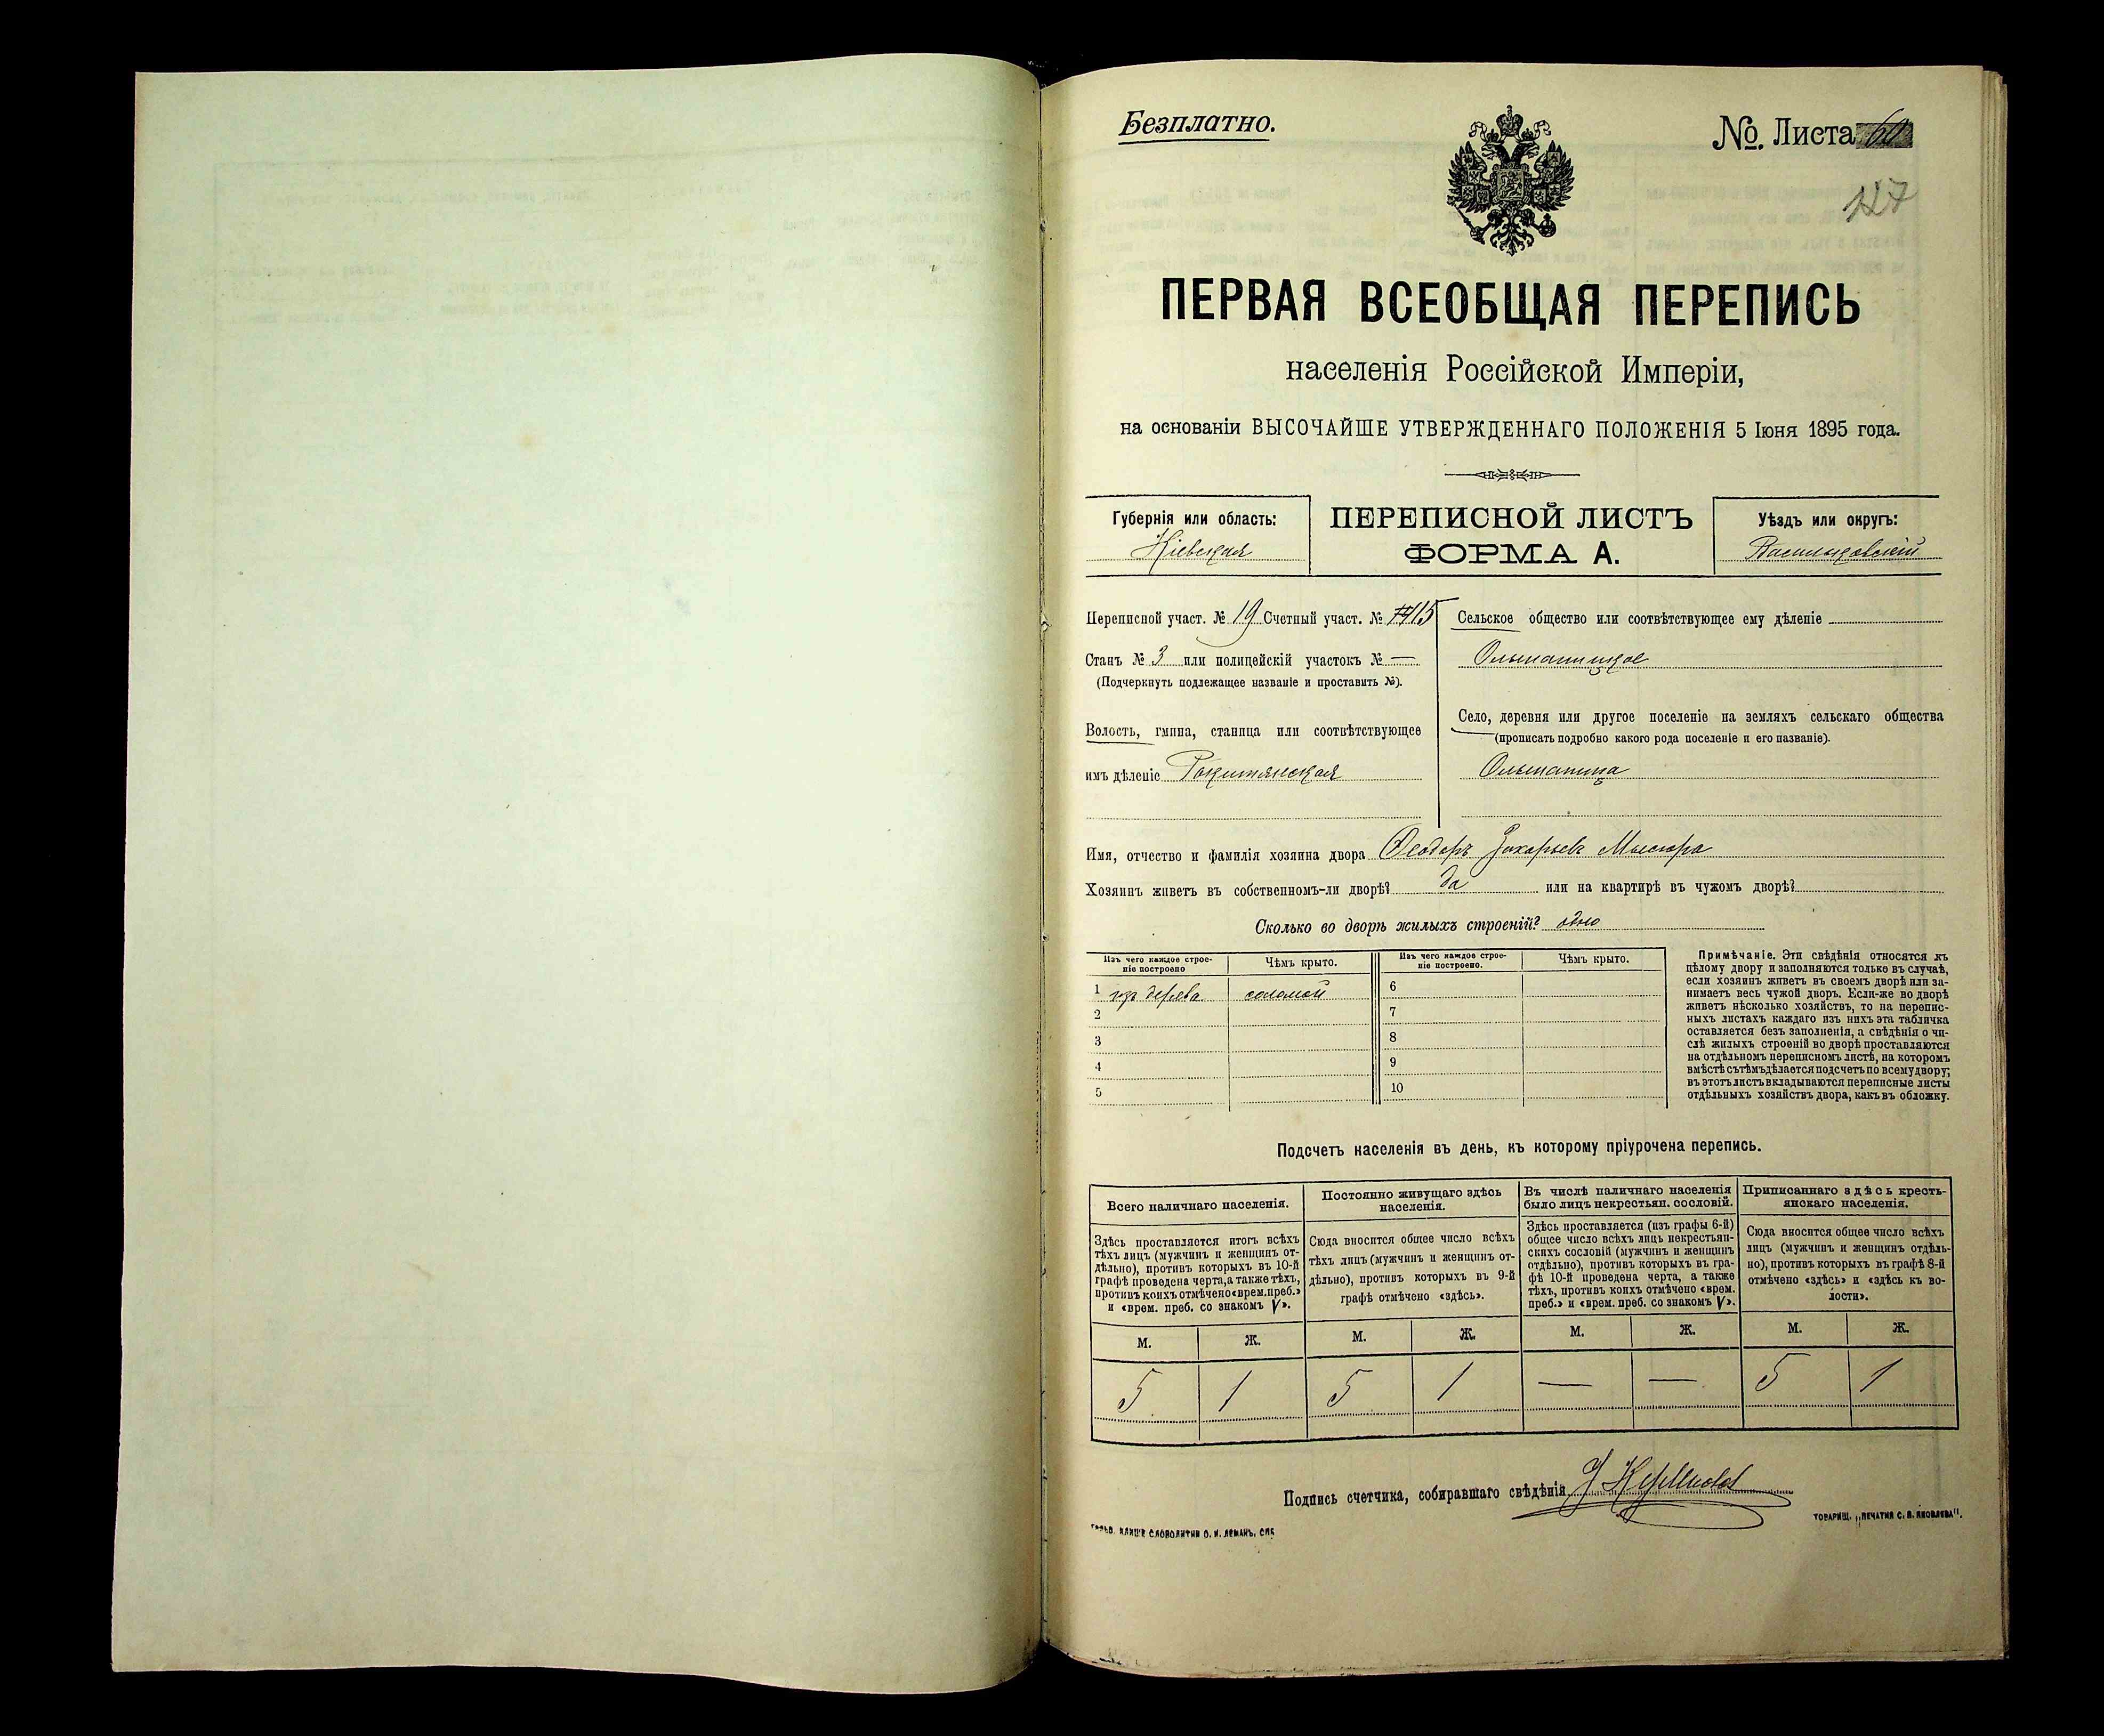 Безплатно.
№. Листа 60
127
ПЕРВАЯ ВСЕОБЩАЯ ПЕРЕПИСЬ
населенія Россійской Имперіи,
на основаніи ВЫСОЧАЙШЕ УТВЕРЖДЕННАГО ПОЛОЖЕНІЯ 5 Іюня 1895 года.
Губернія или область:
Кіевская
ПЕРЕПИСНОЙ ЛИСТЪ
ФОРМА А.
Уѣздъ или округъ:
Васильковскій
Переписной участ. № 19 Счетный участ. № 15
Станъ № 3 или полицейскій участокъ № —
(Подчеркнуть подлежащее названіе и проставить №).
Волость, гмина, станица или соотвѣтствующее
имъ дѣленіе Рокитянская
Сельское общество или соотвѣтствующее ему дѣленіе
Ольшаницкое
Село, деревня или другое поселеніе на земляхъ сельскаго общества
(прописать подробно какого рода поселеніе и его названіе).
Ольшаница
Имя, отчество и фамилія хозяина двора Ѳеодоръ Захарьевъ
Хозяинъ живетъ въ собственномъ-ли дворѣ? да или на квартирѣ въ чужомъ дворѣ?
Сколько во дворѣ жилыхъ строеній? одно
Изъ чего каждое строе-
ніе построено
Чѣмъ крыто.
Изъ чего каждое строе-
ніе построено.
Чѣмъ крыто.
1 изъ дерева соломой 6
2 7
3 8
4 9
5 10
Примѣчаніе. Эти свѣдѣнія относятся къ
цѣлому двору и заполняются только въ случаѣ,
если хозяинъ живетъ въ своемъ дворѣ или за-
нимаетъ весь чужой дворъ. Если-же во дворѣ
живетъ нѣсколько хозяйствъ, то на перепис-
ныхъ листахъ каждаго изъ нихъ эта табличка
оставляется безъ заполненія, а свѣдѣнія о чи-
слѣ жилыхъ строеній во дворѣ проставляются
на отдѣльномъ переписномъ листѣ, на которомъ
вмѣстѣ съ тѣмъ дѣлается подсчетъ по всему двору;
въ этотъ листъ вкладываются переписные листы
отдѣльныхъ хозяйствъ двора, какъ въ обложку.
Подсчетъ населенія въ день, къ которому пріурочена перепись.
Всего наличнаго населенія.
Здѣсь проставляется итогъ всѣхъ
тѣхъ лицъ (мужчинъ и женщинъ от-
дѣльно), противъ которыхъ въ 10-й
графѣ проведена черта, а также тѣхъ,
противъ коихъ отмѣчено «врем. преб.»
и «врем. преб. со знакомъ V».
Постоянно живущаго здѣсь
населенія.
Сюда вносится общее число всѣхъ
тѣхъ лицъ (мужчинъ и женщинъ от-
дѣльно), противъ которыхъ въ 9-й
графѣ отмѣчено «здѣсь».
Въ числѣ наличнаго населенія
было лицъ некрестьян. сословій.
Здѣсь проставляется (изъ графы 6-й)
общее число всѣхъ лицъ некрестьян-
скихъ сословій (мужчинъ и женщинъ
отдѣльно), противъ которыхъ въ гра-
фѣ 10-й проведена черта, а также
тѣхъ, противъ коихъ отмѣчено «врем.
преб.» и «врем. преб. со знакомъ V».
Приписаннаго здѣсь кресть-
янскаго населенія.
Сюда вносится общее число всѣхъ
лицъ (мужчинъ и женщинъ отдѣль-
но), противъ которыхъ въ графѣ 8-й
отмѣчено «здѣсь» и «здѣсь къ во-
лости».
М. Ж. М. Ж. М. Ж. М. Ж.
5 1 5 1 — — 5 1
Подпись счетчика, собиравшаго свѣдѣнія
СЛОВОЛИТНИ О. И. ЛЕМАНЪ, СПБ
ТОВАРИЩ. „ПЕЧАТНЯ С. П. ЯКОВЛЕВА".